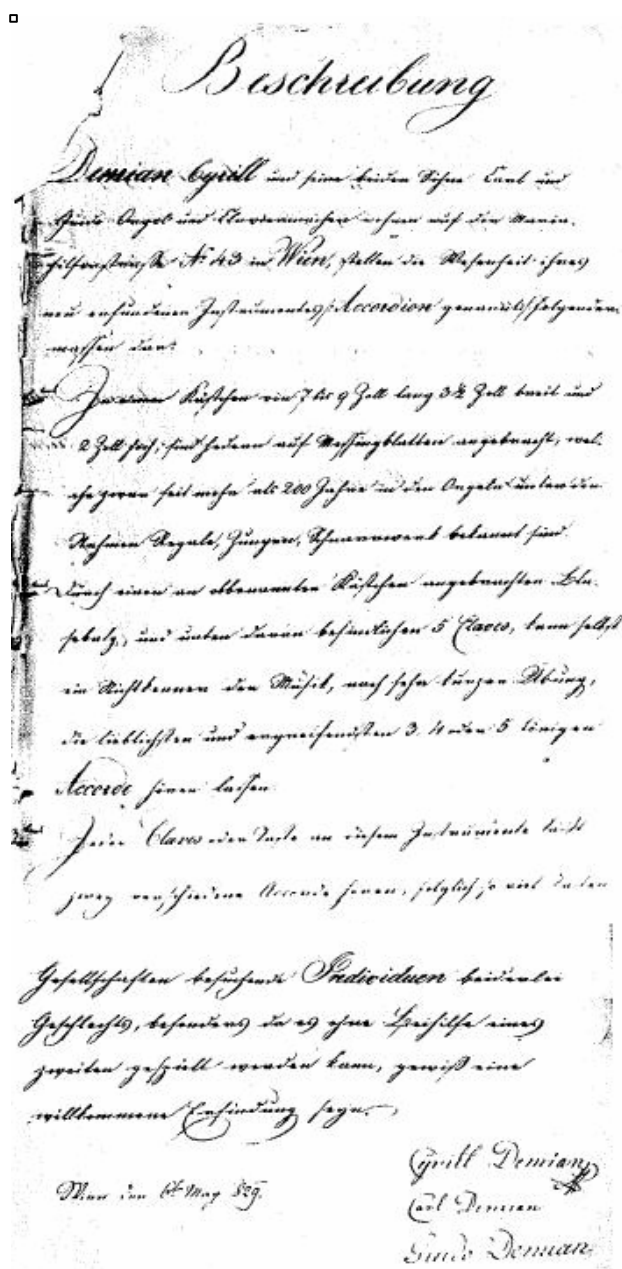 Beschreibung
Demian Cyrill und seine beiden Söhne Carl und
Guido Orgel und Claviermacher wohnen auf der Maria-
hilferstrasse No 43 in Wien, stellen die Wesenheit ihres
neu erfundenen Instrumentes, Accordion genannt, folgender-
massen dar:
In einem Kästchen von 7 bis 9 Zoll lang 3½ Zoll breit und
2 Zoll hoch, sind Federn auf Messingblatten angebracht, wel-
che zwar seit mehr als 200 Jahre in den Orgeln unter den
Nahmen Regale, Zungen, Schnarrwerk bekannt sind.
Durch einen an obbenannten Kästchen angebrachten Bla-
sebalg, und unten daran befindlichen 5 Claves, kann selbst
ein Nichtkenner der Musik, nach sehr kurzer Übung,
die lieblichsten und ergreifendsten 3, 4 oder 5 tönigen
Accorde hören lassen.
Jeder Claves oder Taste an diesem Instrumente läßt
zwey verschiedene Accorde hören, folglich so viel Tasten
Gesellschaften besuchende Individuen beiderlei
Geschlechts, besonders da es ohne Beihilfe eines
zweiten gespielt werden kann, gewiß eine
willkommene Erfindung seyn.
Wien den 6t May 829.
Cyrill Demian
Carl Demian
Guido Demian